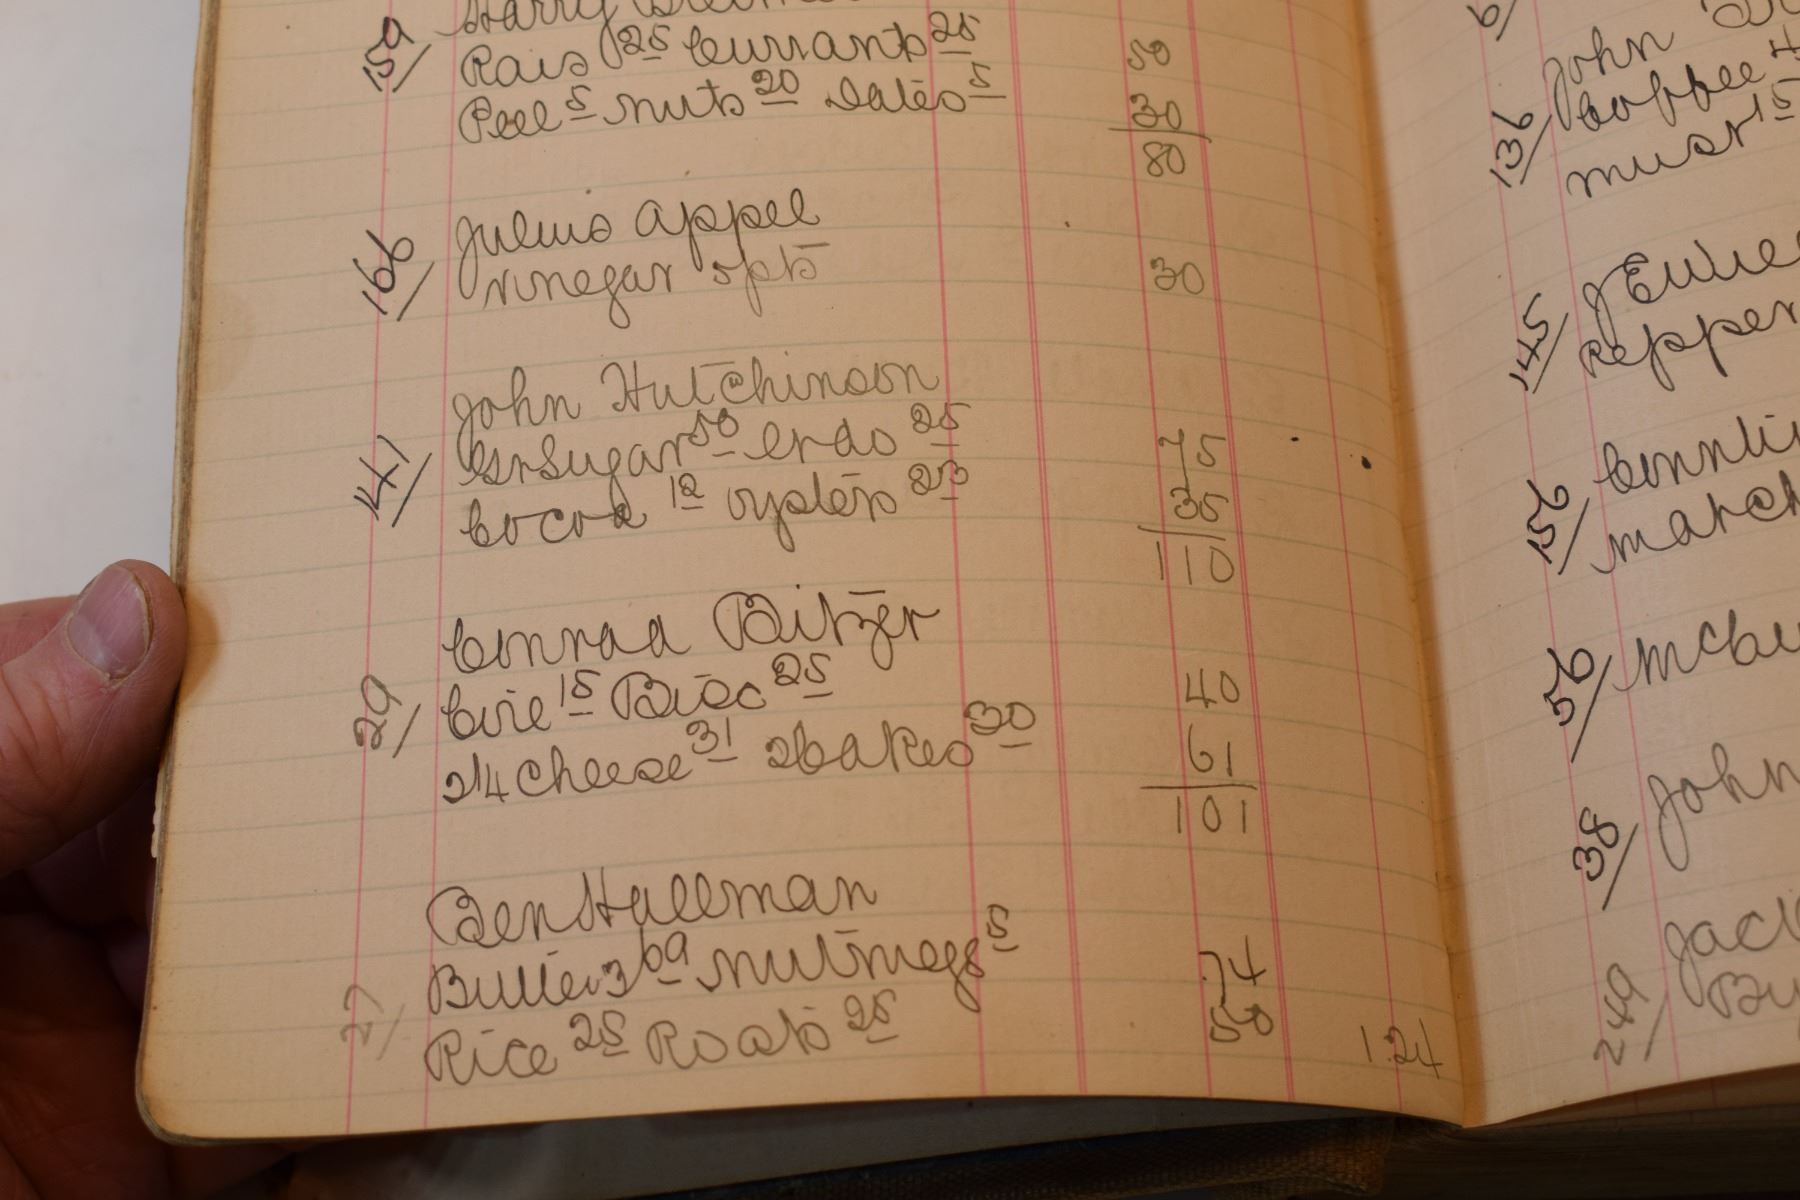 159/ Harry
Rais 25 Currants 25 50
Peel 5 nuts 20 Dates 5 30
80
166/ Julius Appel
Vinegar 5pts 30
141/ John Hutchinson
GrSugar 50 do 25 75
Cocoa 12 oysters 23 35
110
29/ Conrad Bitzer
Bisc 25 40
2 1/4 cheese 31 2 bakes 30 61
101
27/ Ben Hallman
Butter 3 69 nutmegs 5 74
Rice 25 Roats 25 50 124
136/ John
Coffee 4
must 15
145/
Pepper
156/
match
56/
38/ John
249/ Jack